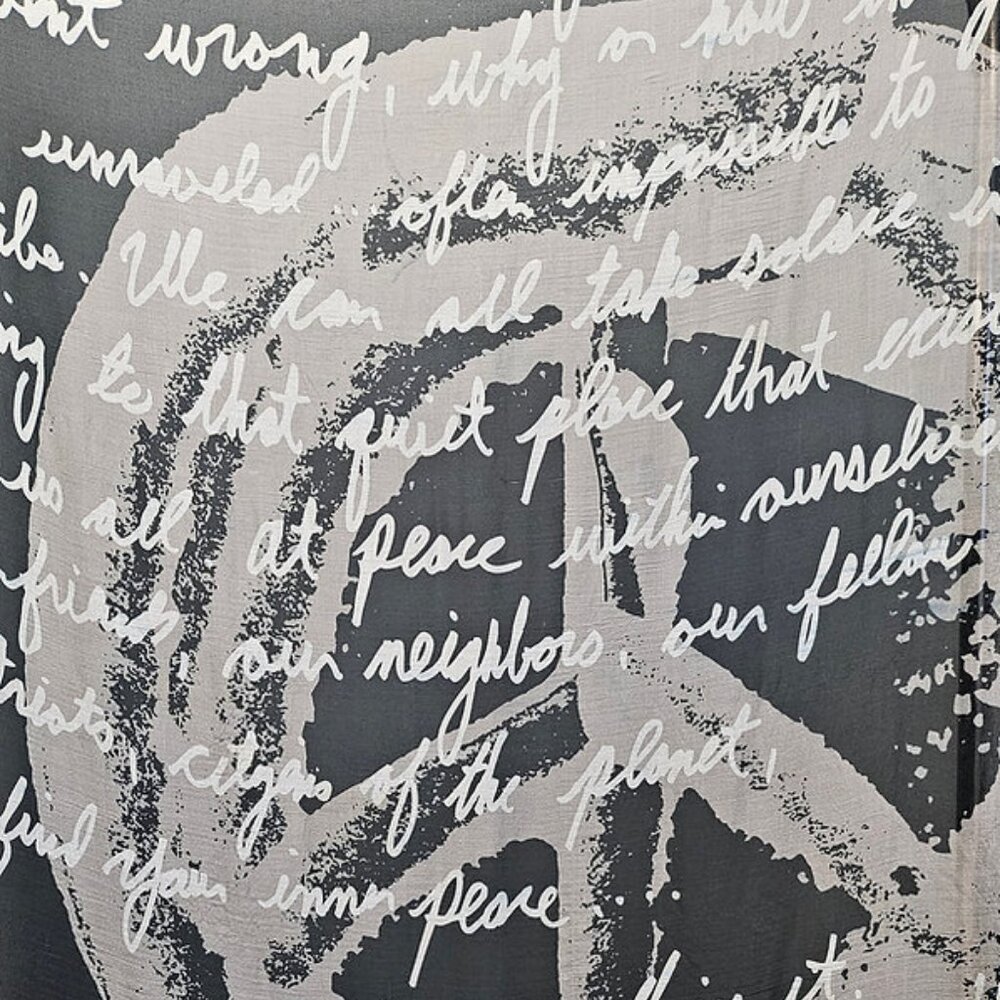 wrong, why or how
unraveled often impossible to
We can all take solace
to that quiet place that
us all at peace within
friends, our neighbors, our fellow
citizens of the planet,
find your inner peace.